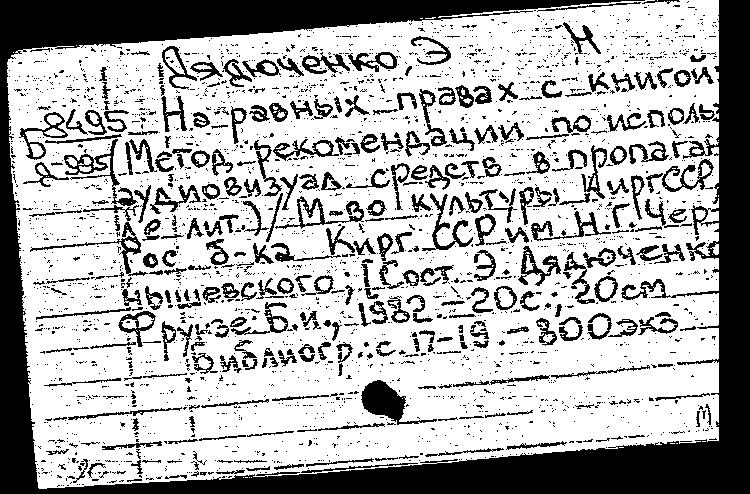 Дядюченко, Э Н
Б8495 На равных правах с книгой:
Д-995 (Метод. рекомендации по использ
аудиовизуал. средств в пропаган
де лит.) / М-во культуры КиргССР,
Гос. б-ка Кирг. ССР им. Н.Г. Чер-
нышевского; [Сост. Э. Дядюченко
Фрунзе: Б.и., 1982. – 20с.; 20см
Библиогр.: с. 17-19. – 800экз
М